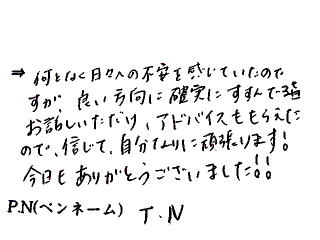 ⇒ 何となく日々への不安を感じていたので
すが、良い方向に確実にすすんで
お話しいただけ、アドバイスももらえた
ので、信じて、自分なりに頑張ります!
今日もありがとうございました!!
P.N(ペンネーム) T.N